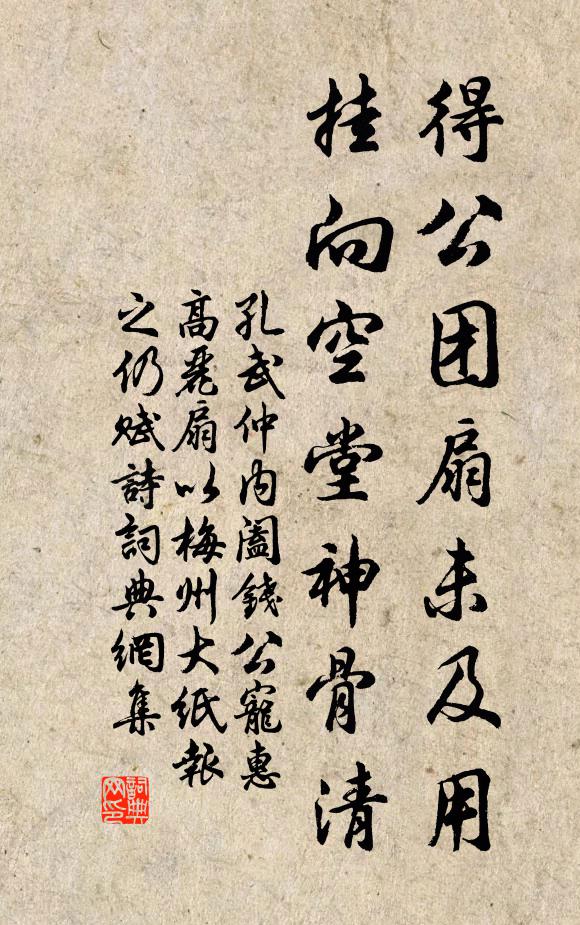 得公团扇未及用
挂向空堂神骨清
孔武仲内阁錢公寵惠
高麗扇以梅州大紙報
之仍赋詩詞典網集
詞典网印